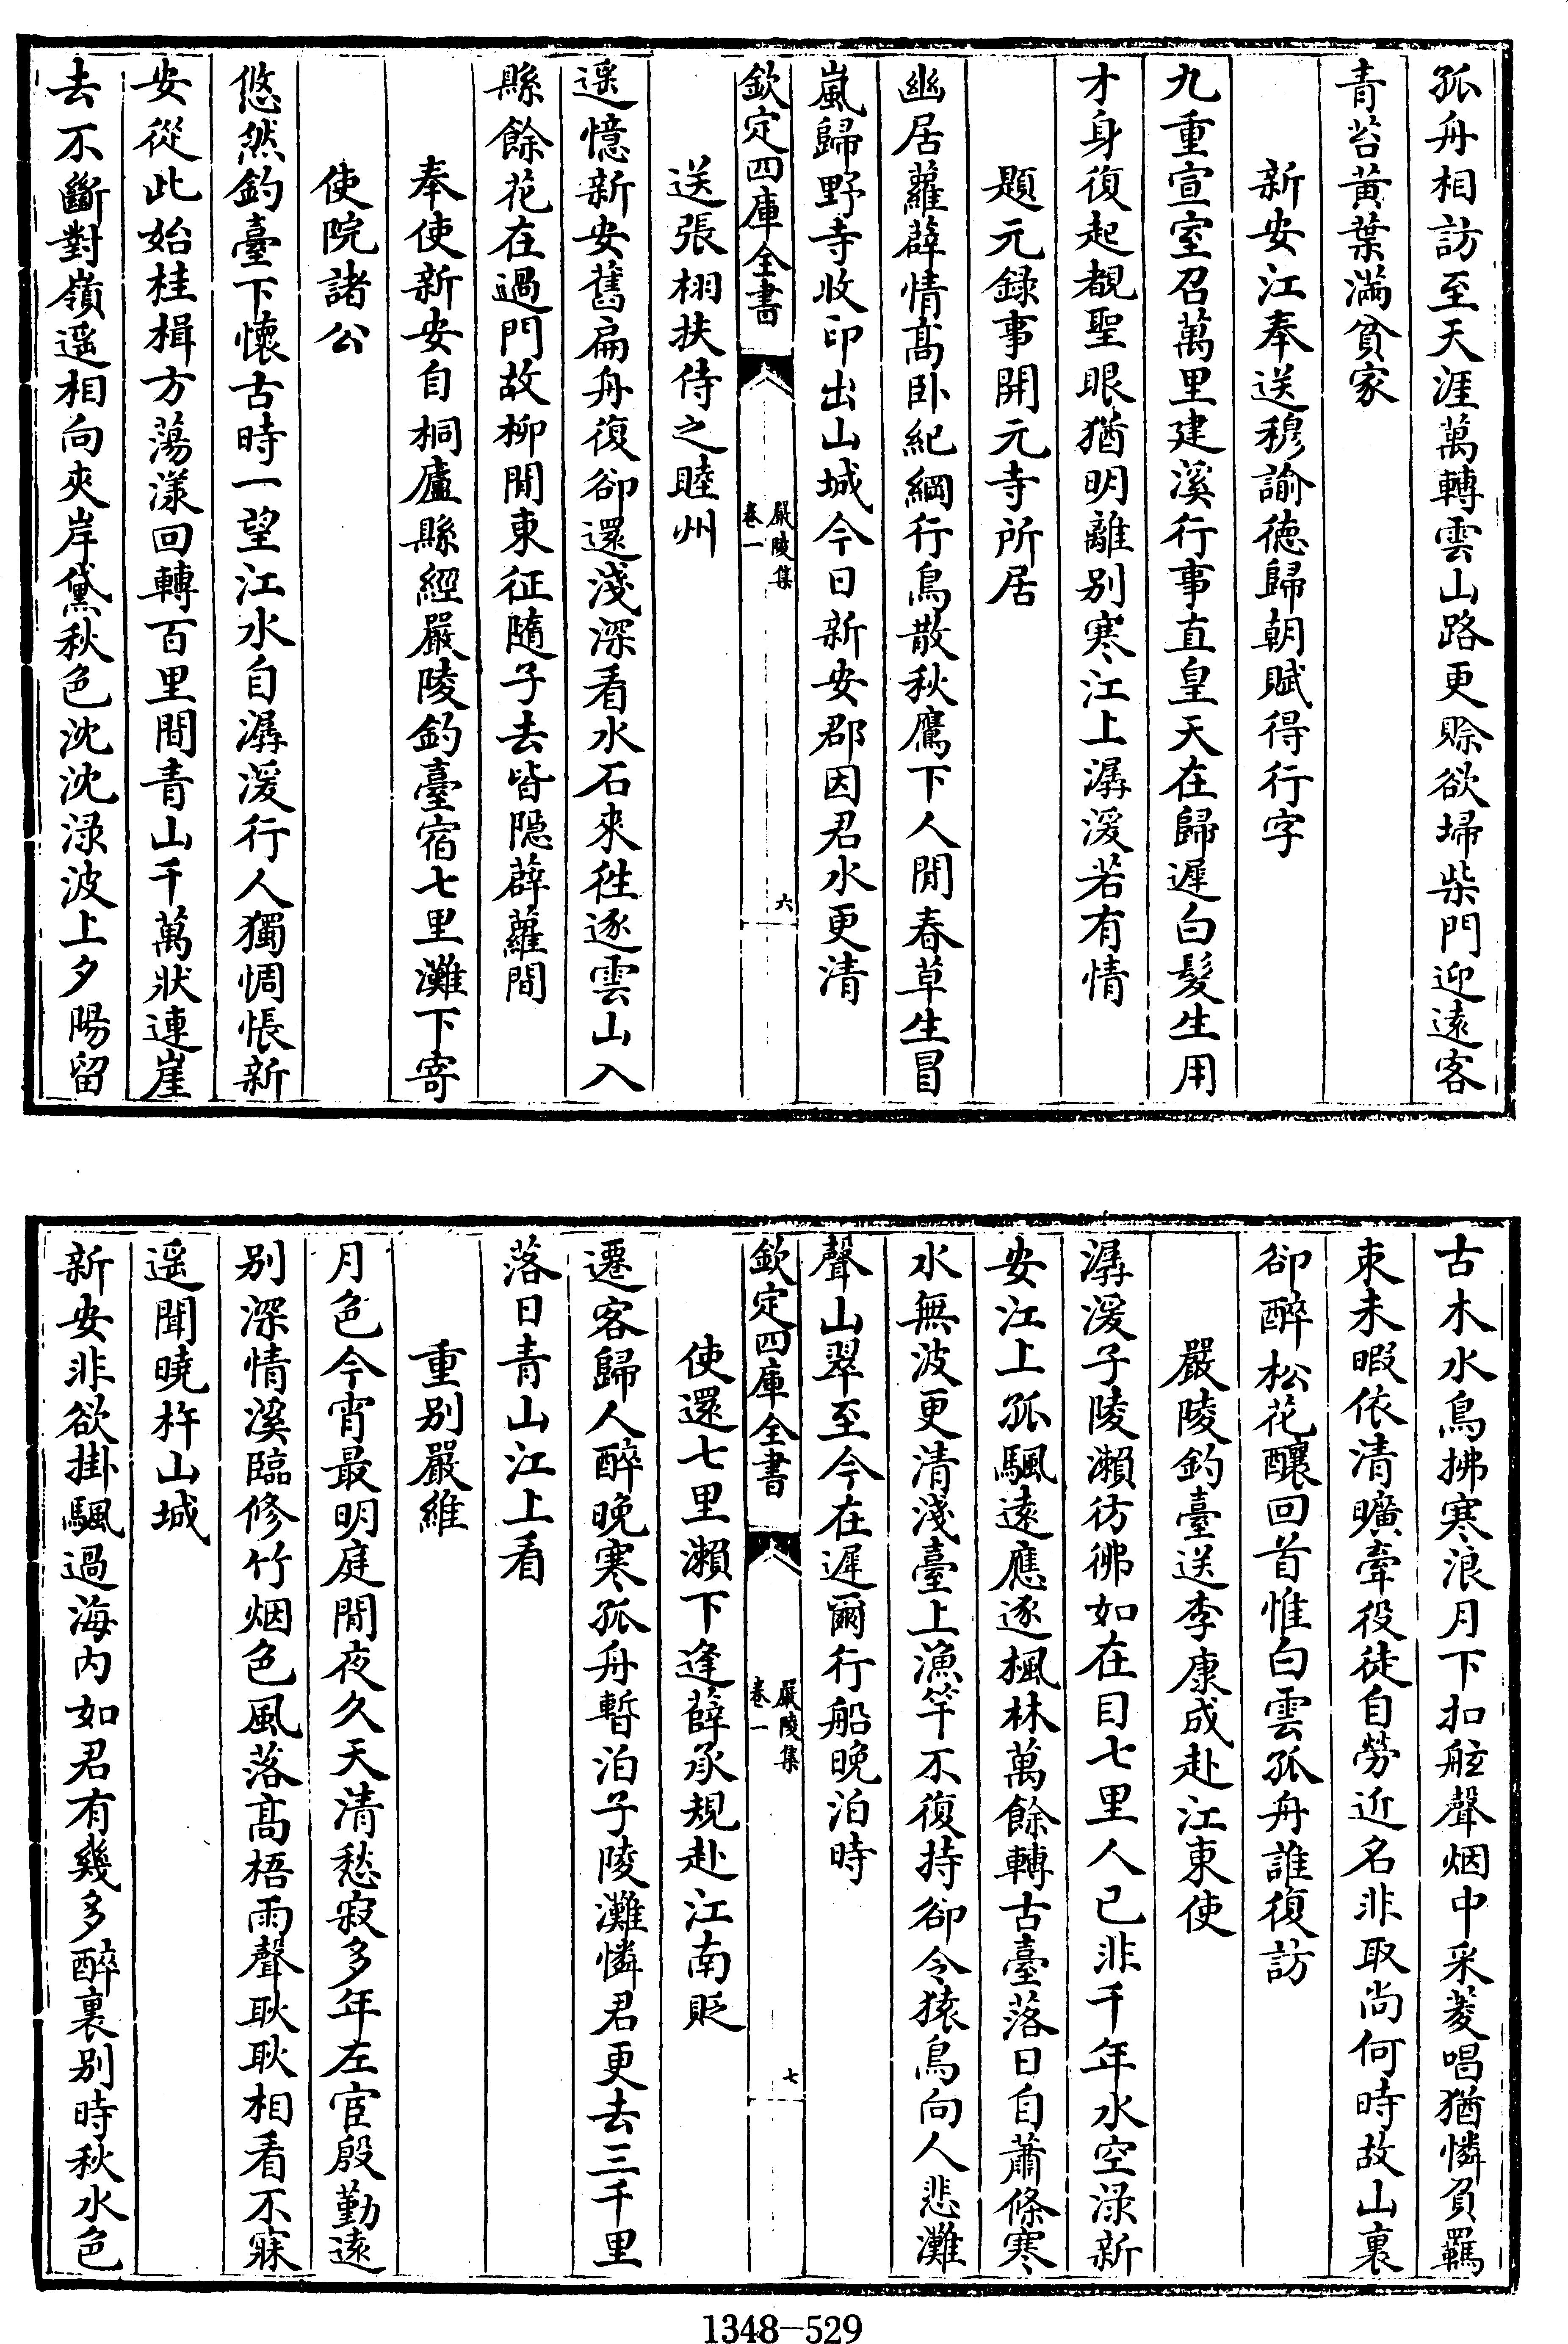 孤舟相訪至天涯萬轉雲山路更賒欲埽柴門迎遠客
青苔黃葉滿貧家
新安江奉送穆諭德歸朝賦得行字
九重宣室召萬里建溪行事直皇天在歸遲白髮生用
才身復起覩聖眼猶明離別寒江上潺湲若有情
題元錄事開元寺所居
幽居蘿薜情髙卧紀綱行鳥散秋鷹下人閒春草生冒
嵐歸野寺收印出山城今日新安郡因君水更清
欽定四庫全書
嚴陵集
卷一
六
送張栩扶侍之睦州
遥憶新安舊扁舟復卻還淺深看水石來徃逐雲山入
縣餘花在過門故柳閒東征隨子去皆隱薜蘿間
奉使新安自桐廬縣經嚴陵釣臺宿七里灘下寄
使院諸公
悠然釣臺下懷古時一望江水自潺湲行人獨惆悵新
安從此始桂楫方蕩漾回轉百里間青山千萬狀連崖
去不斷對嶺遥相向夾岸黛秋色沈沈渌波上夕陽留
古木水鳥拂寒浪月下扣舷聲烟中采菱唱猶憐負羈
束未暇依清曠牽役徒自勞近名非取尚何時故山裏
卻醉松花釀回首惟白雲孤舟誰復訪
嚴陵釣臺送李康成赴江東使
潺湲子陵瀨彷彿如在目七里人已非千年水空渌新
安江上孤颿遠應逐楓林萬餘轉古臺落日自蕭條寒
水無波更清淺臺上漁竿不復持卻令猿鳥向人悲灘
聲山翠至今在遲爾行船晚泊時
欽定四庫全書
嚴陵集
卷一
七
使還七里瀨下逢薛承規赴江南貶
遷客歸人醉晚寒孤舟暫泊子陵灘憐君更去三千里
落日青山江上看
重別嚴維
月色今宵最明庭閒夜久天清愁寂多年左宦殷勤遠
別深情溪臨修竹烟色風落髙梧雨聲耿耿相看不寐
遥聞曉柝山城
新安非欲掛颿過海内如君有幾多醉裏別時秋水色
1348-529